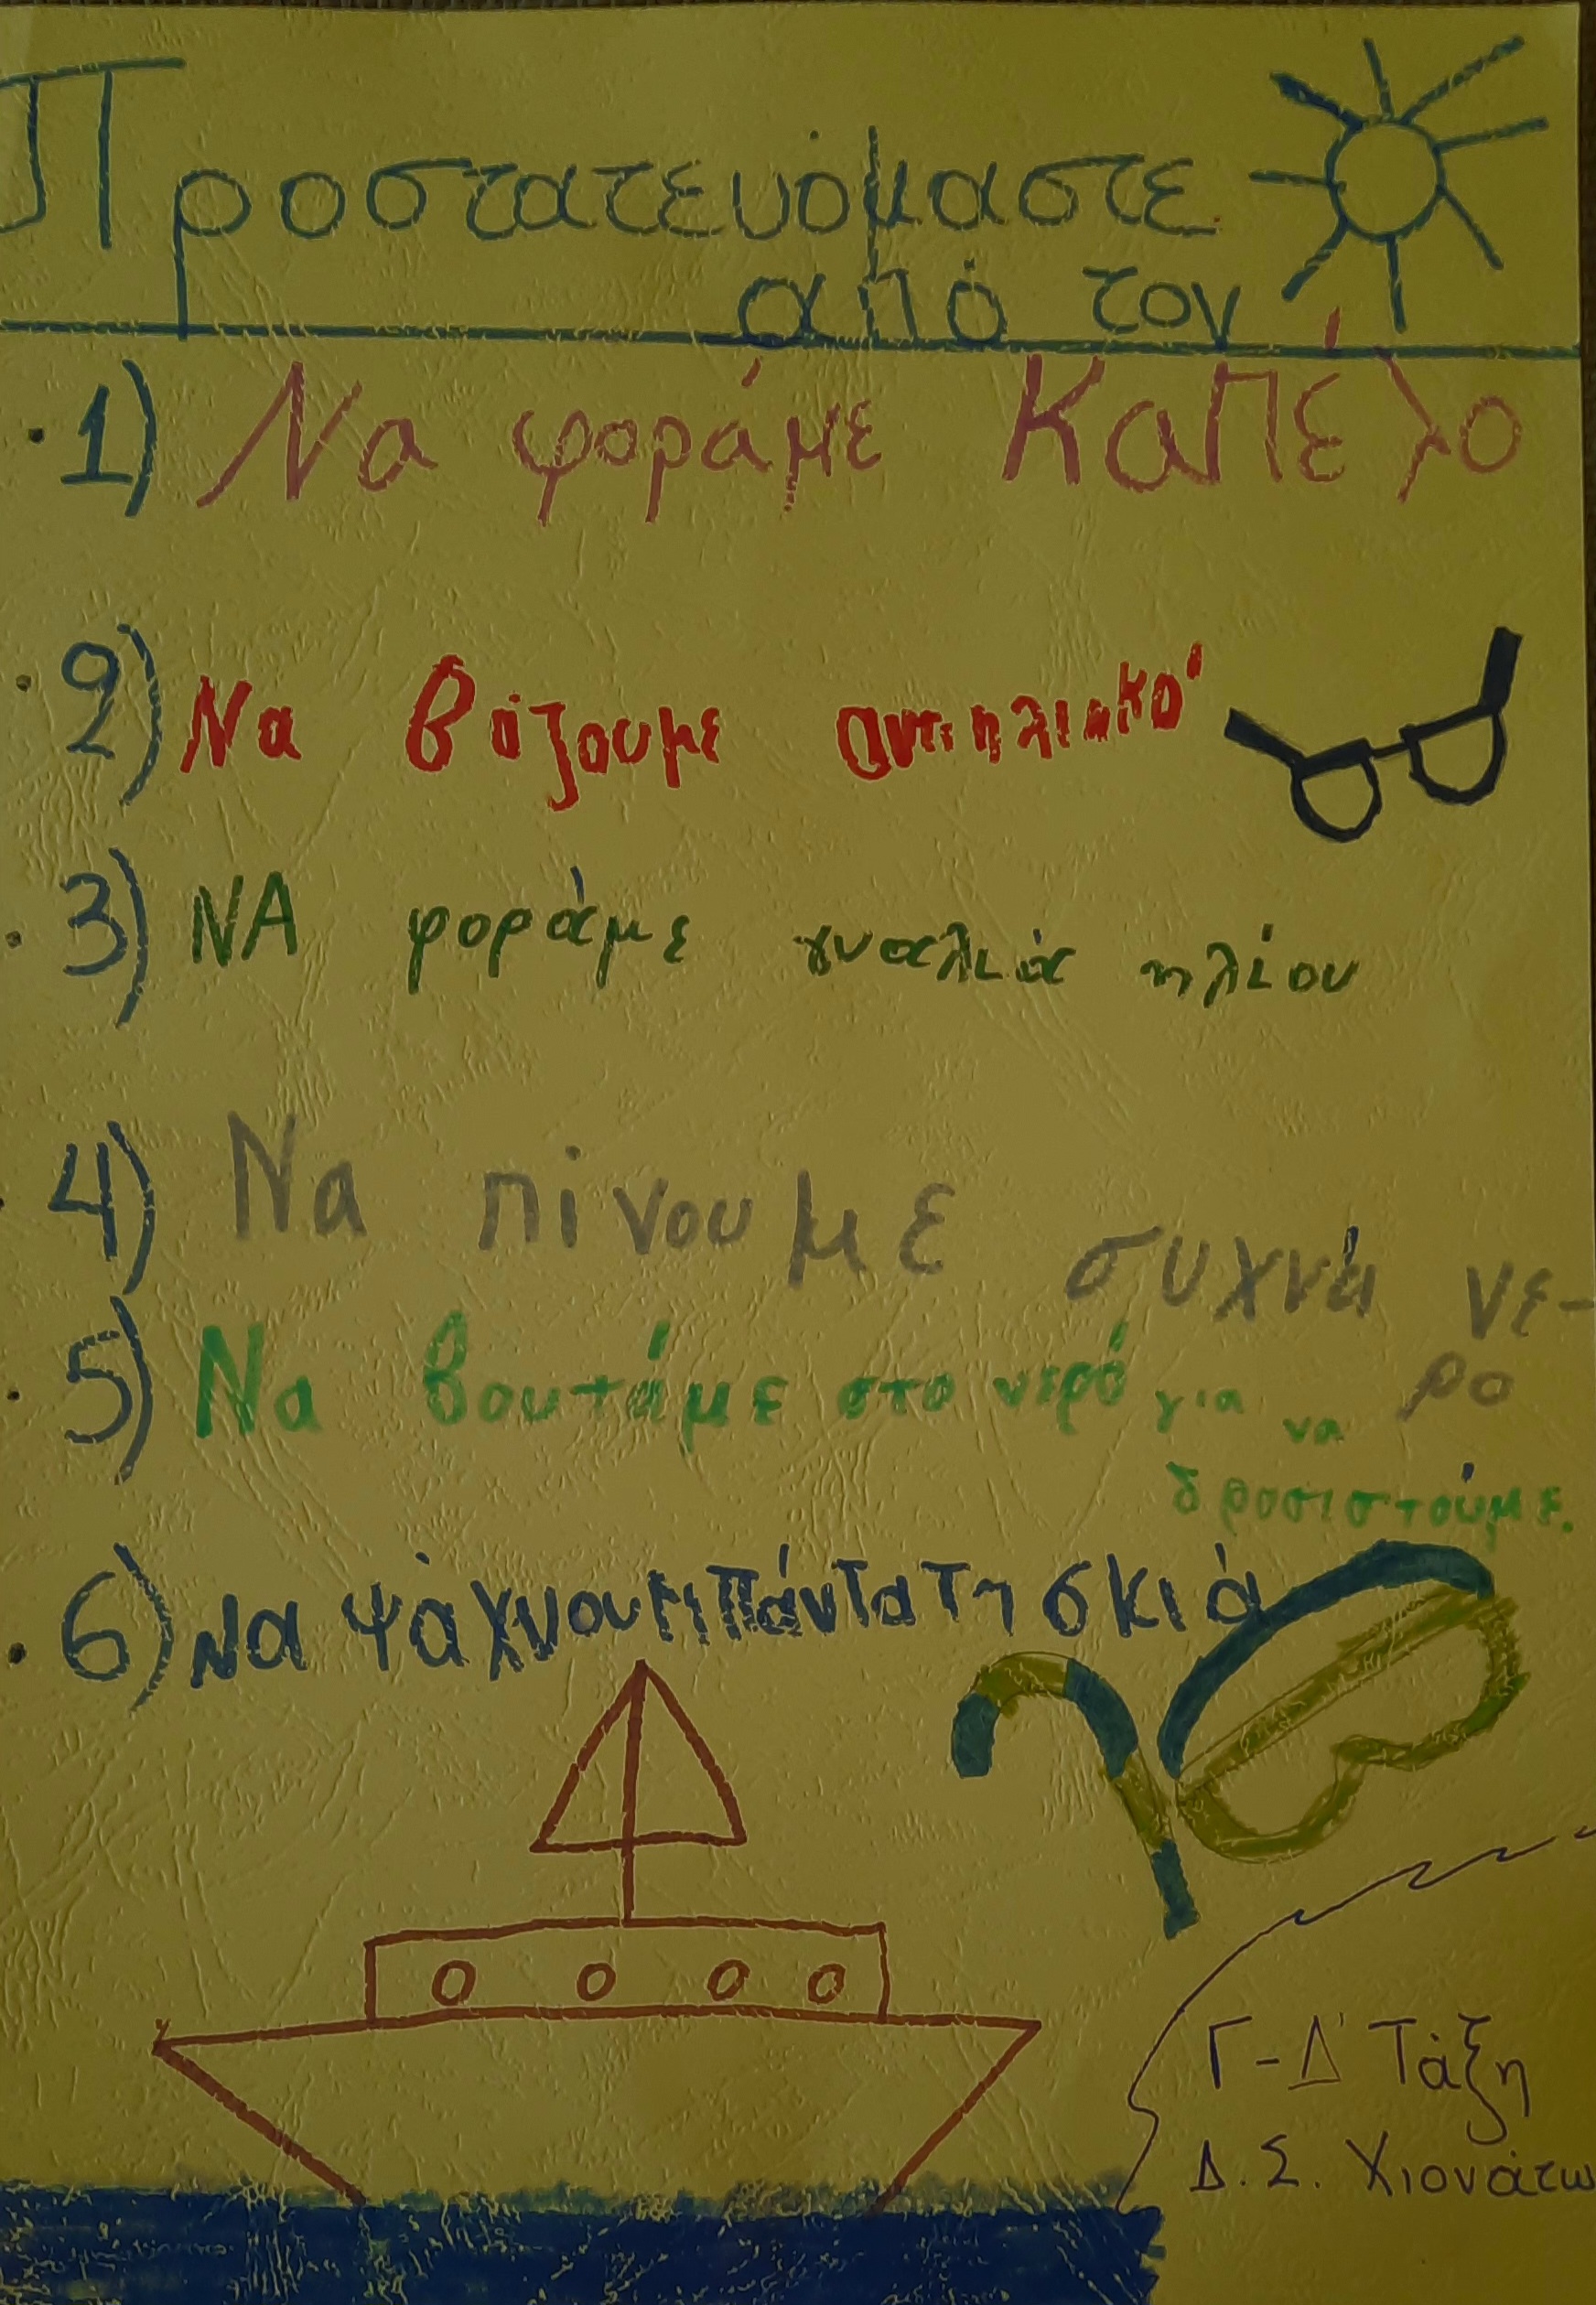 Προστατευόμαστε
από τον
1) Να φοράμε Καπέλο
2) Να βάζουμε αντιηλιακό
3) ΝΑ φοράμε γυαλιά ηλίου
4) Να πίνουμε συχνά νε-
ρο
5) Να βουτάμε στο νερό για να
δροσιστούμε.
6) Να ψάχνουμε πάντα τη σκιά
Γ-Δ' Τάξη
Δ.Σ. Χιονάτω